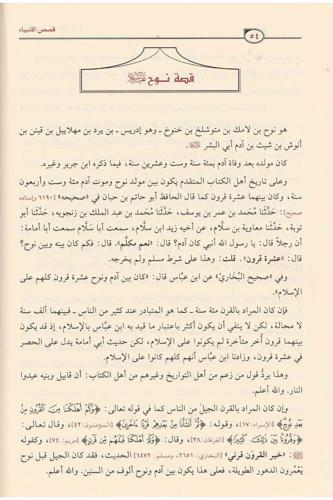 ٥٤
قصص الأنبياء
قصة نوح عليه السلام
هو نوح بن لامك بن متوشلخ بن خنوخ ـ وهو إدريس ـ بن يرد بن مهلاييل بن قينن بن
أنوش بن شيث بن آدم أبي البشر ﷺ.
كان مولده بعد وفاة آدم بمئة سنة وست وعشرين سنة، فيما ذكره ابن جرير وغيره.
وعلى تاريخ أهل الكتاب المتقدم يكون بين مولد نوح وموت آدم مئة وست وأربعون
سنة، وكان بينهما عشرة قرون كما قال الحافظ أبو حاتم بن حبان في «صحيحه» [٦١٩٠ وإسناده
صحيح]: حَدَّثنا مُحمد بن عمر بن يوسف، حَدَّثنا مُحمد بن عبد الملك بن زنجويه، حَدَّثنا أبو
توبة، حَدَّثنا معاوية بن سلَّام، عن أخيه زيد ابن سلَّام، سمعت أبا سلَّام سمعت أبا أمامة:
أن رجلًا قال: يا رسول الله أنبي كان آدم؟ قال: «نعم مكلَّم». قال: فكم كان بينه وبين نوح؟
قال: «عشرة قرون». قلت: وهذا على شرط مسلم ولم يخرجه.
وفي «صحيح البُخاريّ» عن ابن عبَّاس قال: «كان بين آدم ونوح عشرة قرون كلهم على
الإسلام».
فإن كان المراد بالقرن مئة سنة ـ كما هو المتبادر عند كثير من الناس ـ فبينهما ألف سنة
لا محالة، لكن لا ينفي أن يكون أكثر باعتبار ما قيد به ابن عبَّاس بالإسلام، إذ قد يكون
بينهما قرون أُخر متأخرة لم يكونوا على الإسلام، لكن حديث أبي أمامة يدل على الحصر
في عشرة قرون، وزادنا ابن عبَّاس أنهم كلهم كانوا على الإسلام.
وهذا يردُّ قول من زعم من أهل التواريخ وغيرهم من أهل الكتاب: أن قابيل وبنيه عبدوا
النار. والله أعلم.
وإن كان المراد بالقرن الجيل من الناس كما في قوله تعالى: ﴿وَكَمْ أَهْلَكْنَا مِنَ الْقُرُونِ مِن
بَعْدِ نُوحٍ﴾ [الإسراء: ١٧]، وقوله: ﴿ثُمَّ أَنشَأْنَا مِن بَعْدِهِمْ قُرُونًا آخَرِينَ﴾ [المؤمنون: ٤٢]، وقال تعالى:
﴿وَقُرُونًا بَيْنَ ذَلِكَ كَثِيرًا﴾ [الفرقان: ٣٨]، وقال: ﴿وَكَمْ أَهْلَكْنَا قَبْلَهُم مِّن قَرْنٍ﴾ [مريم: ٧٤]، وكقوله
ﷺ: «خير القرون قرني» [البخاري: ٢٦٥١، ومسلم: ٦٤٧٢] الحديث، فقد كان الجيل قبل نوح
يَعْمُرون الدهور الطويلة، فعلى هذا يكون بين آدم ونوح ألوف من السنين. والله أعلم.